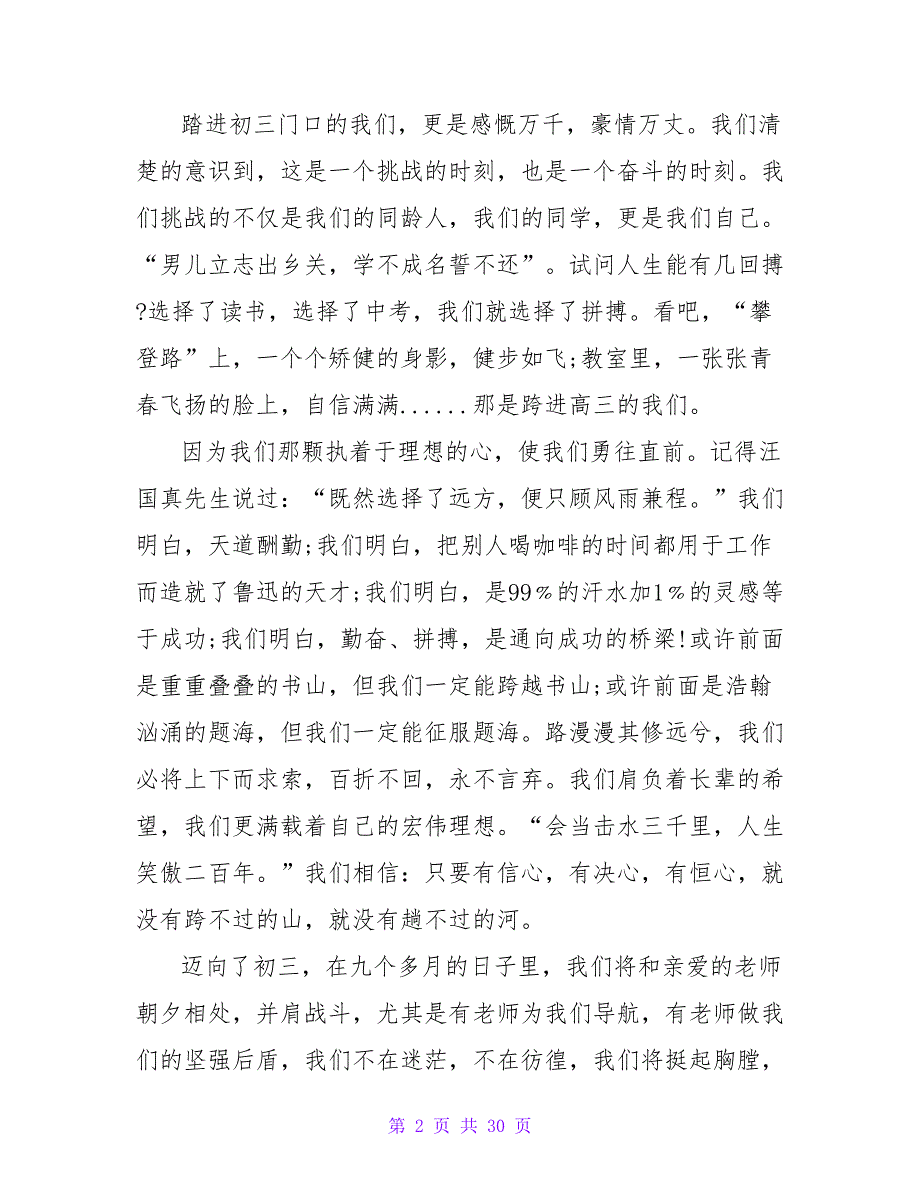 踏进初三门口的我们，更是感慨万千，豪情万丈。我们清
楚的意识到，这是一个挑战的时刻，也是一个奋斗的时刻。我
们挑战的不仅是我们的同龄人，我们的同学，更是我们自己。
“男儿立志出乡关，学不成名誓不还”。试问人生能有几回搏
?选择了读书，选择了中考，我们就选择了拼搏。看吧，“攀
登路”上，一个个矫健的身影，健步如飞;教室里，一张张青
春飞扬的脸上，自信满满......那是跨进高三的我们。
因为我们那颗执着于理想的心，使我们勇往直前。记得汪
国真先生说过：“既然选择了远方，便只顾风雨兼程。”我们
明白，天道酬勤;我们明白，把别人喝咖啡的时间都用于工作
而造就了鲁迅的天才;我们明白，是99﹪的汗水加1﹪的灵感等
于成功;我们明白，勤奋、拼搏，是通向成功的桥梁!或许前面
是重重叠叠的书山，但我们一定能跨越书山;或许前面是浩翰
汹涌的题海，但我们一定能征服题海。路漫漫其修远兮，我们
必将上下而求索，百折不回，永不言弃。我们肩负着长辈的希
望，我们更满载着自己的宏伟理想。“会当击水三千里，人生
笑傲二百年。”我们相信：只要有信心，有决心，有恒心，就
没有跨不过的山，就没有趟不过的河。
迈向了初三，在九个多月的日子里，我们将和亲爱的老师
朝夕相处，并肩战斗，尤其是有老师为我们导航，有老师做我
们的坚强后盾，我们不在迷茫，不在彷徨，我们将挺起胸膛，
第 2 页 共 30 页